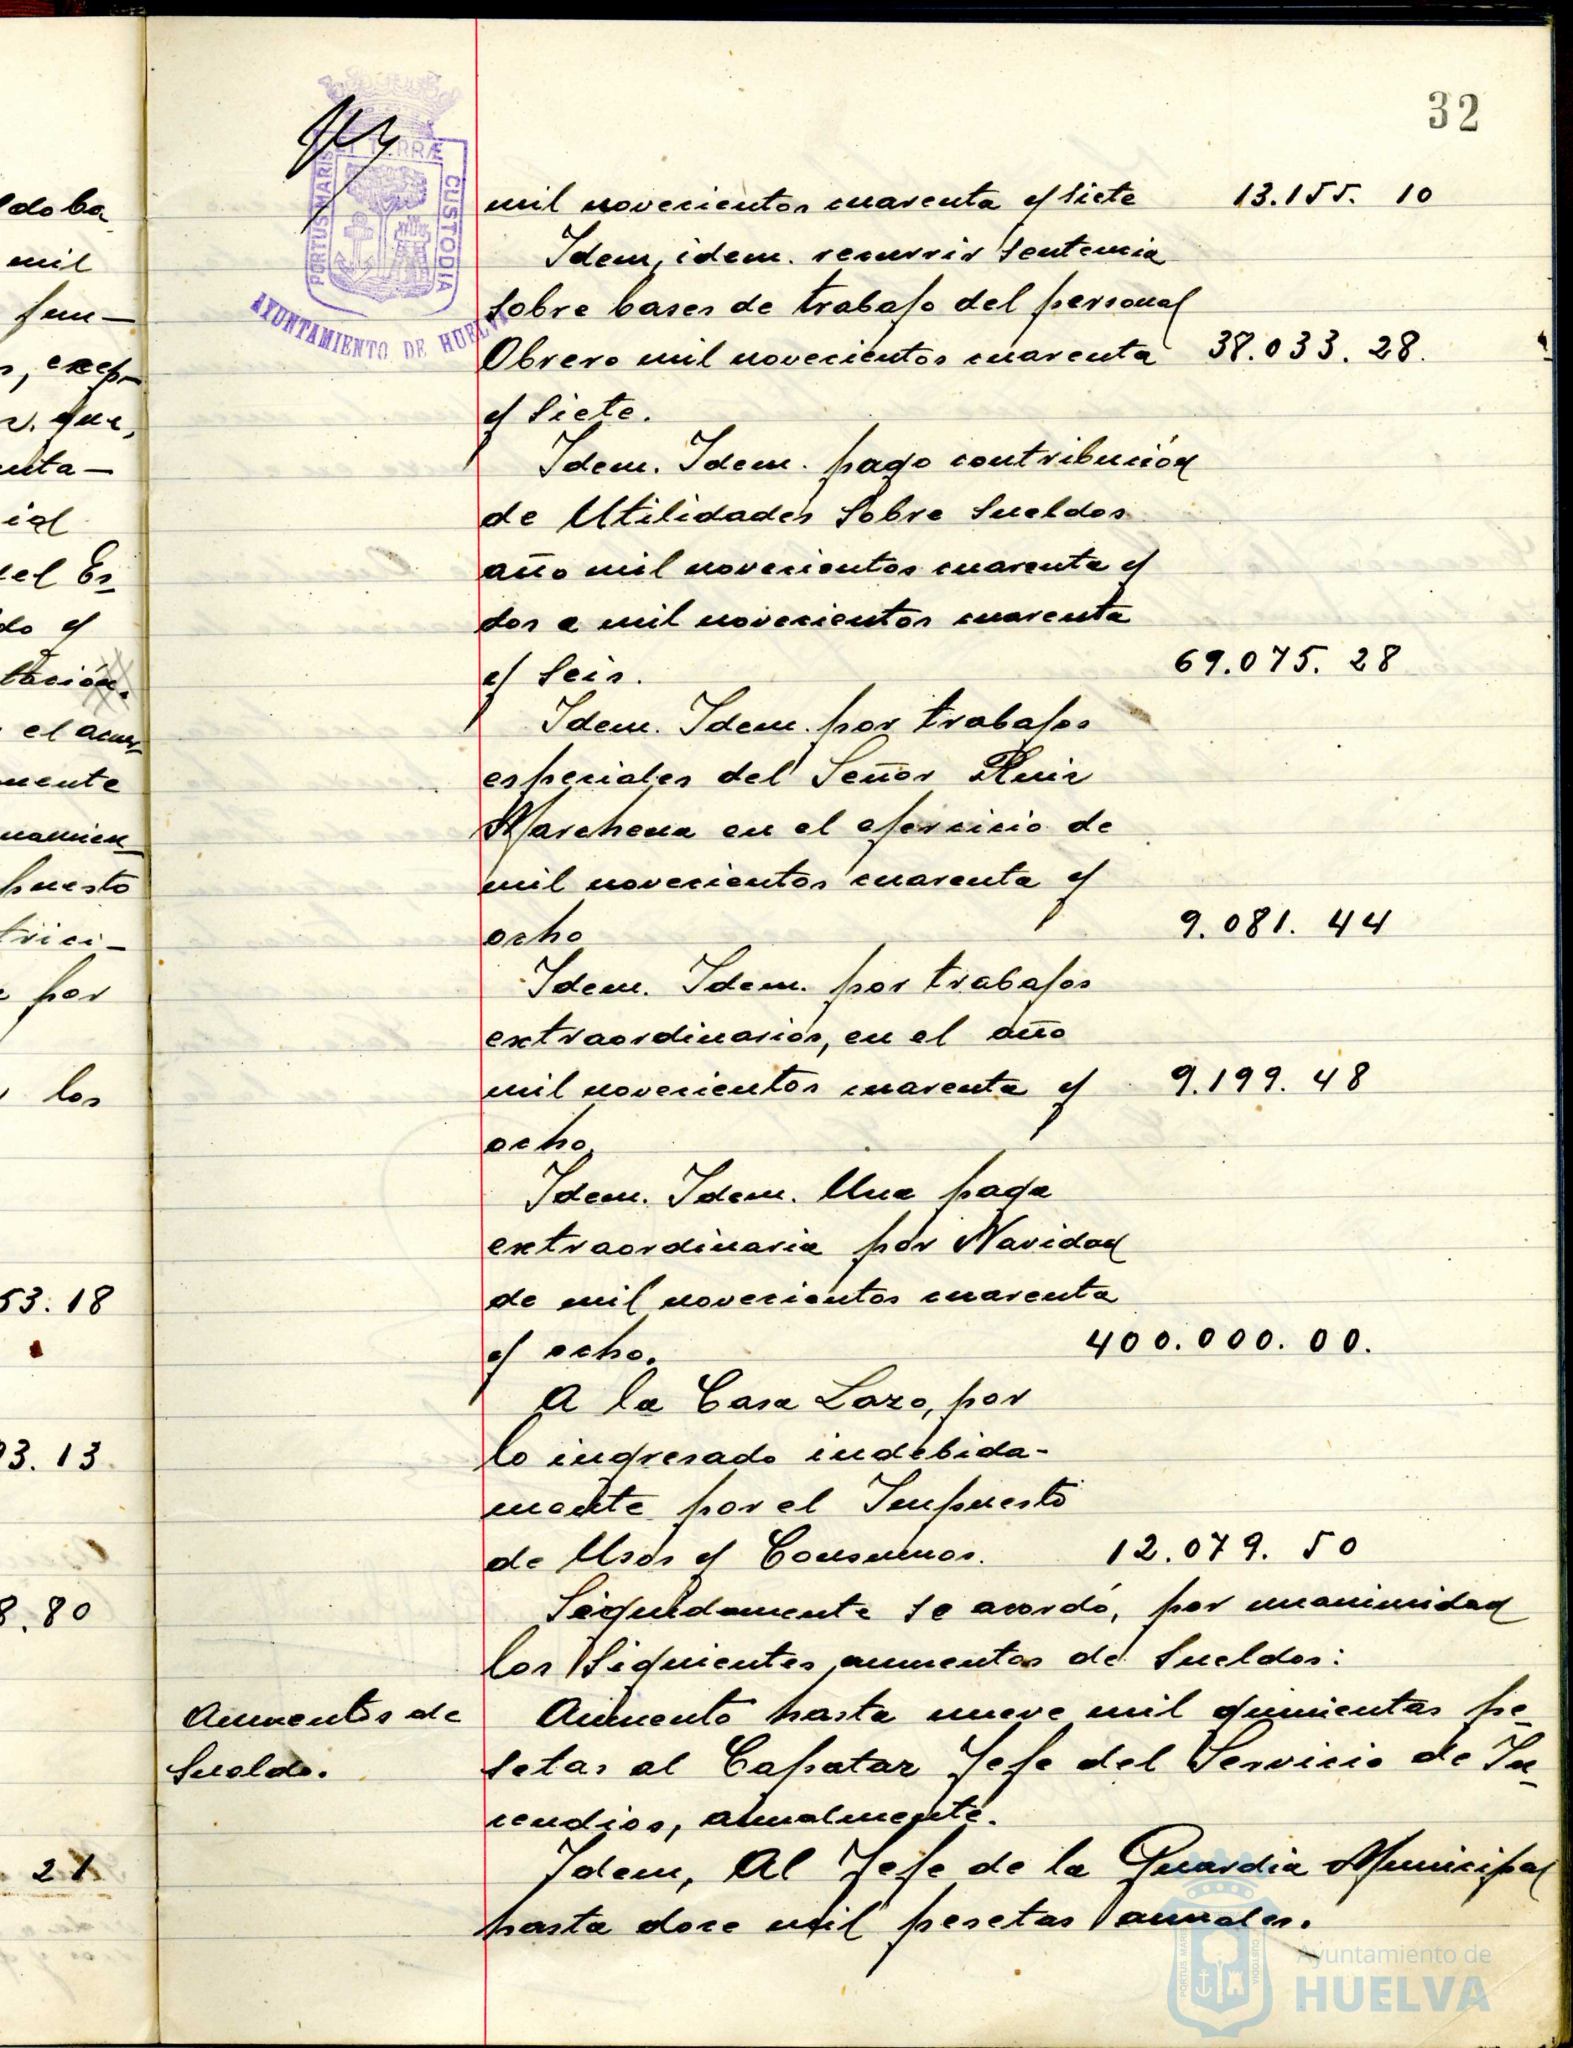 32
PORTUS MARIS ET TERRÆ CUSTODIA
AYUNTAMIENTO DE HUELVA
mil novecientos cuarenta y siete 13.155. 10
Idem, idem. recurrir sentencia
sobre bases de trabajo del personal
Obrero mil novecientos cuarenta 38.033. 28.
y siete.
Idem. Idem. pago contribución
de Utilidades sobre sueldos
año mil novecientos cuarenta y
dos a mil novecientos cuarenta
y seis. 69.075. 28
Idem. Idem. por trabajos
especiales del Señor Ruiz
Marchena en el ejercicio de
mil novecientos cuarenta y
ocho 9.081. 44
Idem. Idem. por trabajos
extraordinarios, en el año
mil novecientos cuarenta y 9.199. 48
ocho.
Idem. Idem. Una paga
extraordinaria por Navidad
de mil novecientos cuarenta
y ocho. 400.000. 00.
A la Casa Lazo, por
lo ingresado indebida-
mente por el Impuesto
de Usos y Consumos. 12.079. 50
Seguidamente se acordó, por unanimidad
los siguientes aumentos de sueldos:
Aumentos de
sueldo.
Aumento hasta nueve mil quinientas pe-
setas al Capataz Jefe del Servicio de In-
cendios, anualmente.
Idem, Al Jefe de la Guardia Municipal
hasta doce mil pesetas anuales.
ldo ba-
mil
fun-
, excep-
que,
nta-
ial
el Es-
do y
tación.
el acuer-
mente
namien-
puesto
trici-
por
los
53.18
93.13
8.80
21
Ayuntamiento de
HUELVA